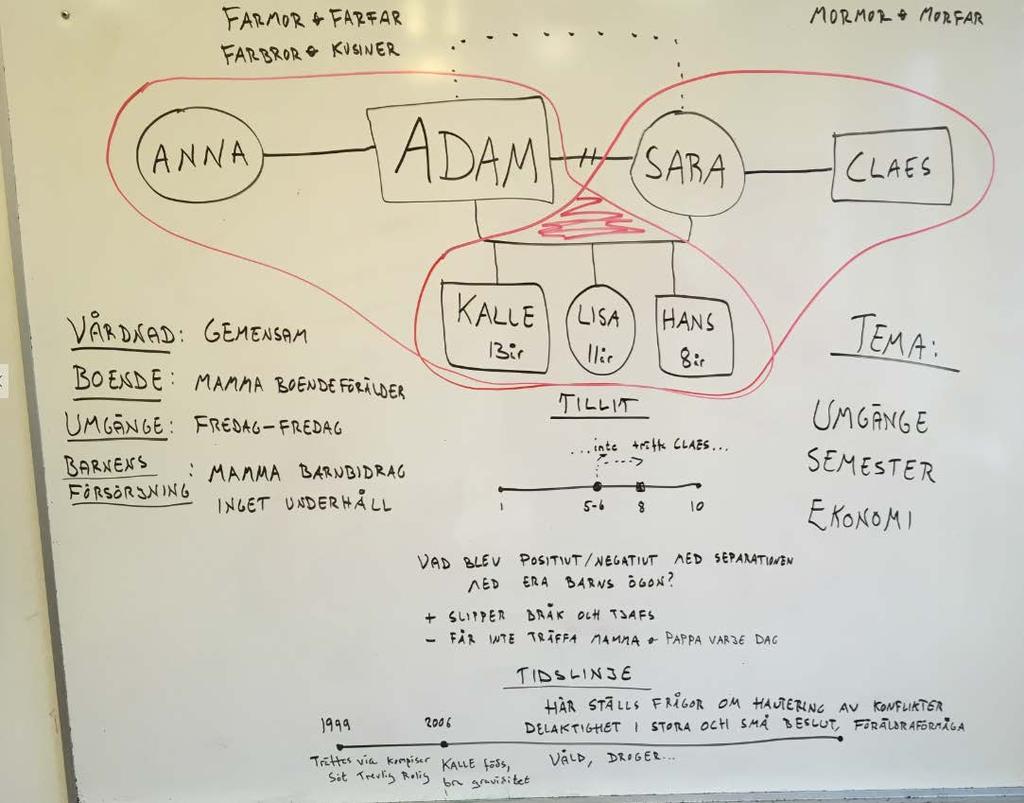 FARMOR & FARFAR
FARBROR & KUSINER
MORMOR & MORFAR
ANNA
ADAM
SARA
CLAES
KALLE
13 år
LISA
11 år
HANS
8 år
VÅRDNAD: GEMENSAM
BOENDE: MAMMA BOENDEFÖRÄLDER
UMGÄNGE: FREDAG-FREDAG
BARNENS FÖRSÖRJNING: MAMMA BARNBIDRAG
INGET UNDERHÅLL
TEMA:
UMGÄNGE
SEMESTER
EKONOMI
TILLIT
...inte träffa CLAES...
1 5-6 8 10
VAD BLEV POSITIVT/NEGATIVT MED SEPARATIONEN
MED ERA BARNS ÖGON?
+ SLIPPER BRÅK OCH TJAFS
- FÅR INTE TRÄFFA MAMMA & PAPPA VARJE DAG
TIDSLINJE
HÄR STÄLLS FRÅGOR OM HANTERING AV KONFLIKTER
DELAKTIGHET I STORA OCH SMÅ BESLUT, FÖRÄLDRAFÖRMÅGA
VÅLD, DROGER...
1999
Träffas via kompisar
Söt Trevlig Rolig
2006
KALLE föds,
bra graviditet